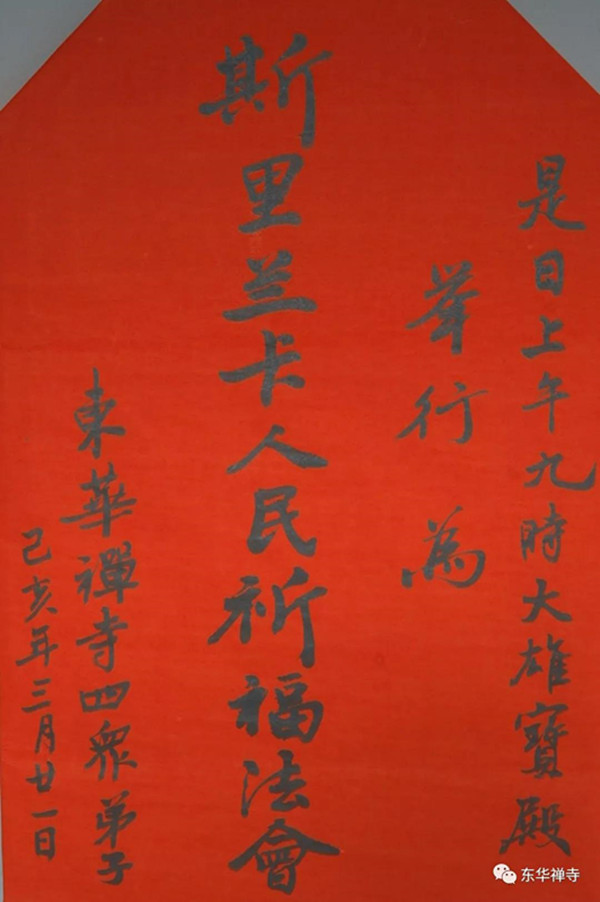 是日上午九時大雄寶殿
举行為
斯里兰卡人民祈福法會
東華禪寺四眾弟子
己亥年三月廿一日
东华禅寺